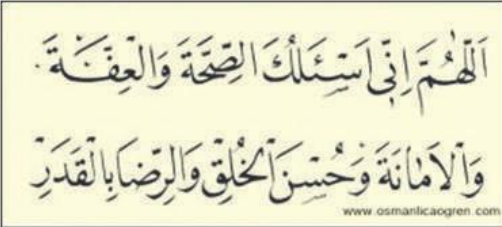 اَللّٰهُمَّ اِنّٖى اَسْئَلُكَ الصِّحَّةَ وَالْعِفَّةَ
وَالْاَمَانَةَ وَحُسْنَ الْخُلُقِ وَالرِّضَا بِالْقَدَرِ
www.osmanlicaogren.com